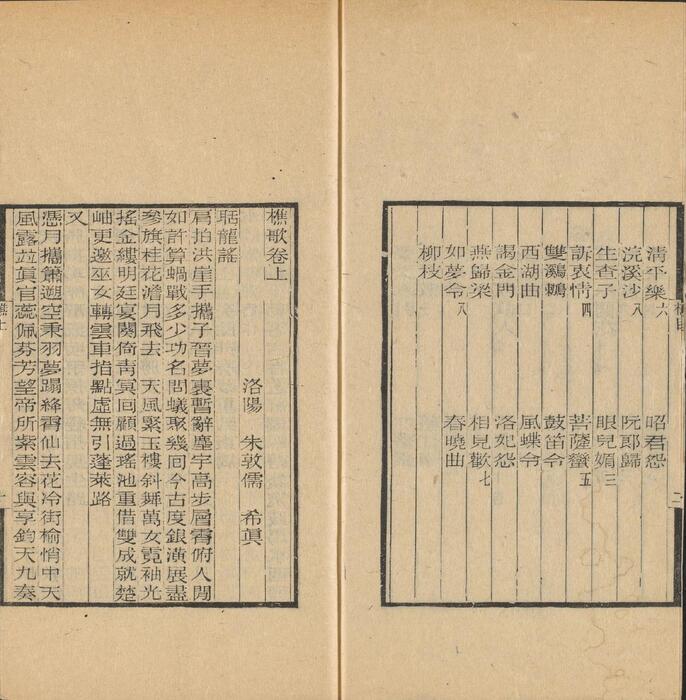 清平樂六　昭君怨
浣溪沙八　阮郎歸
生查子　眼兒媚三
訴衷情四　菩薩蠻五
雙鸂鶒　鼓笛令
西湖曲　風蝶令
謁金門　洛妃怨
燕歸梁　相見歡七
如夢令八　春曉曲
柳枝
樵歌卷上
洛陽　朱敦儒　希眞
聒龍謠
肩拍洪崖手攜子晉夢裏暫辭塵宇高步層霄俯人間
如許算蝸戰多少功名問蟻聚幾囘今古度銀潢展盡
參旗桂花澹月飛去　天風緊玉樓斜舞萬女霓袖光
搖金縷明廷宴闋倚靑冥囘顧過瑤池重借雙成就楚
岫更邀巫女轉雲車指點虛無引蓬萊路
又
憑月攜簫遡空秉羽夢蹋絳霄仙去花冷街榆悄中天
風露並眞官蕊佩芬芳望帝所紫雲容與享鈞天九奏